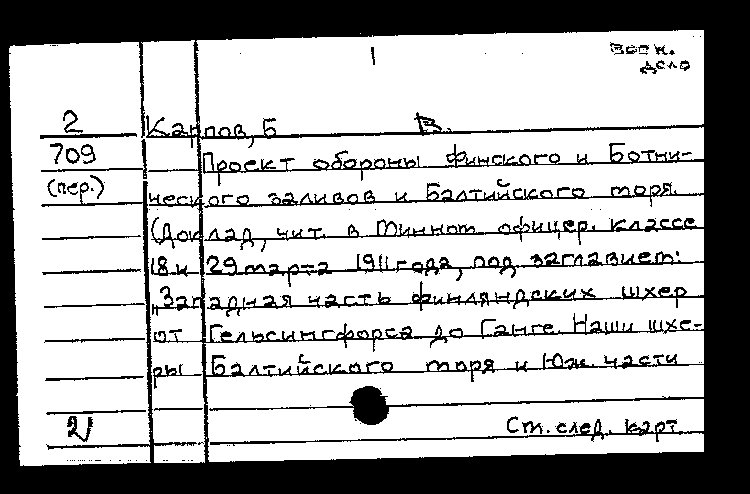 1
Воен.
дело
2
709
(пер.)
Карпов, Б В.
Проект обороны Финского и Ботни-
ческого заливов и Балтийского моря.
(Доклад, чит. в Минном офицер. классе
18 и 29 марта 1911 года, под заглавием:
„Западная часть финляндских шхер
от Гельсингфорса до Ганге. Наши шхе-
ры Балтийского моря и Юж. части
2
См. след. карт.